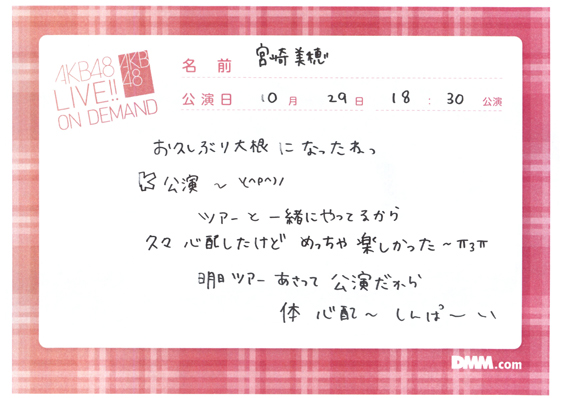 AKB48
LIVE!!
ON DEMAND
AKB
48
名前 宮崎美穂
公演日 10月 29日 18:30 公演
お久しぶり大根になったねっ
K公演〜 \(^p^)/
ツアーと一緒にやってるから
久々心配したけど めっちゃ楽しかった〜π3π
明日ツアー あさって公演だから
体心配〜しんぱ〜い
DMM.com